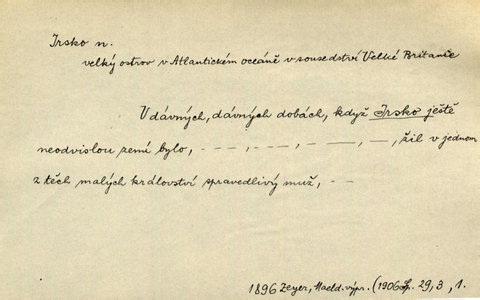 Irsko n.
velký ostrov v Atlantickém oceáně v sousedství Velké Britanie
V dávných, dávných dobách, když Irsko ještě
neodvislou zemí bylo, – – –, – – –, – – –, –, žil v jednom
z těch malých království spravedlivý muž, – –
1896 Zeyer, Maeld. výpr. (1906) 29, 3, 1.